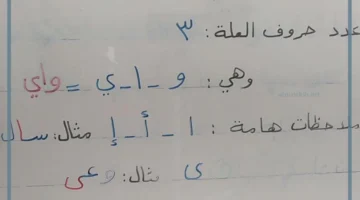 عدد حروف العلة: ٣
وهي: و - ا - ي = واي
ملاحظات هامة: ا - أ - إ مثال: سال
ى مثال: وعى